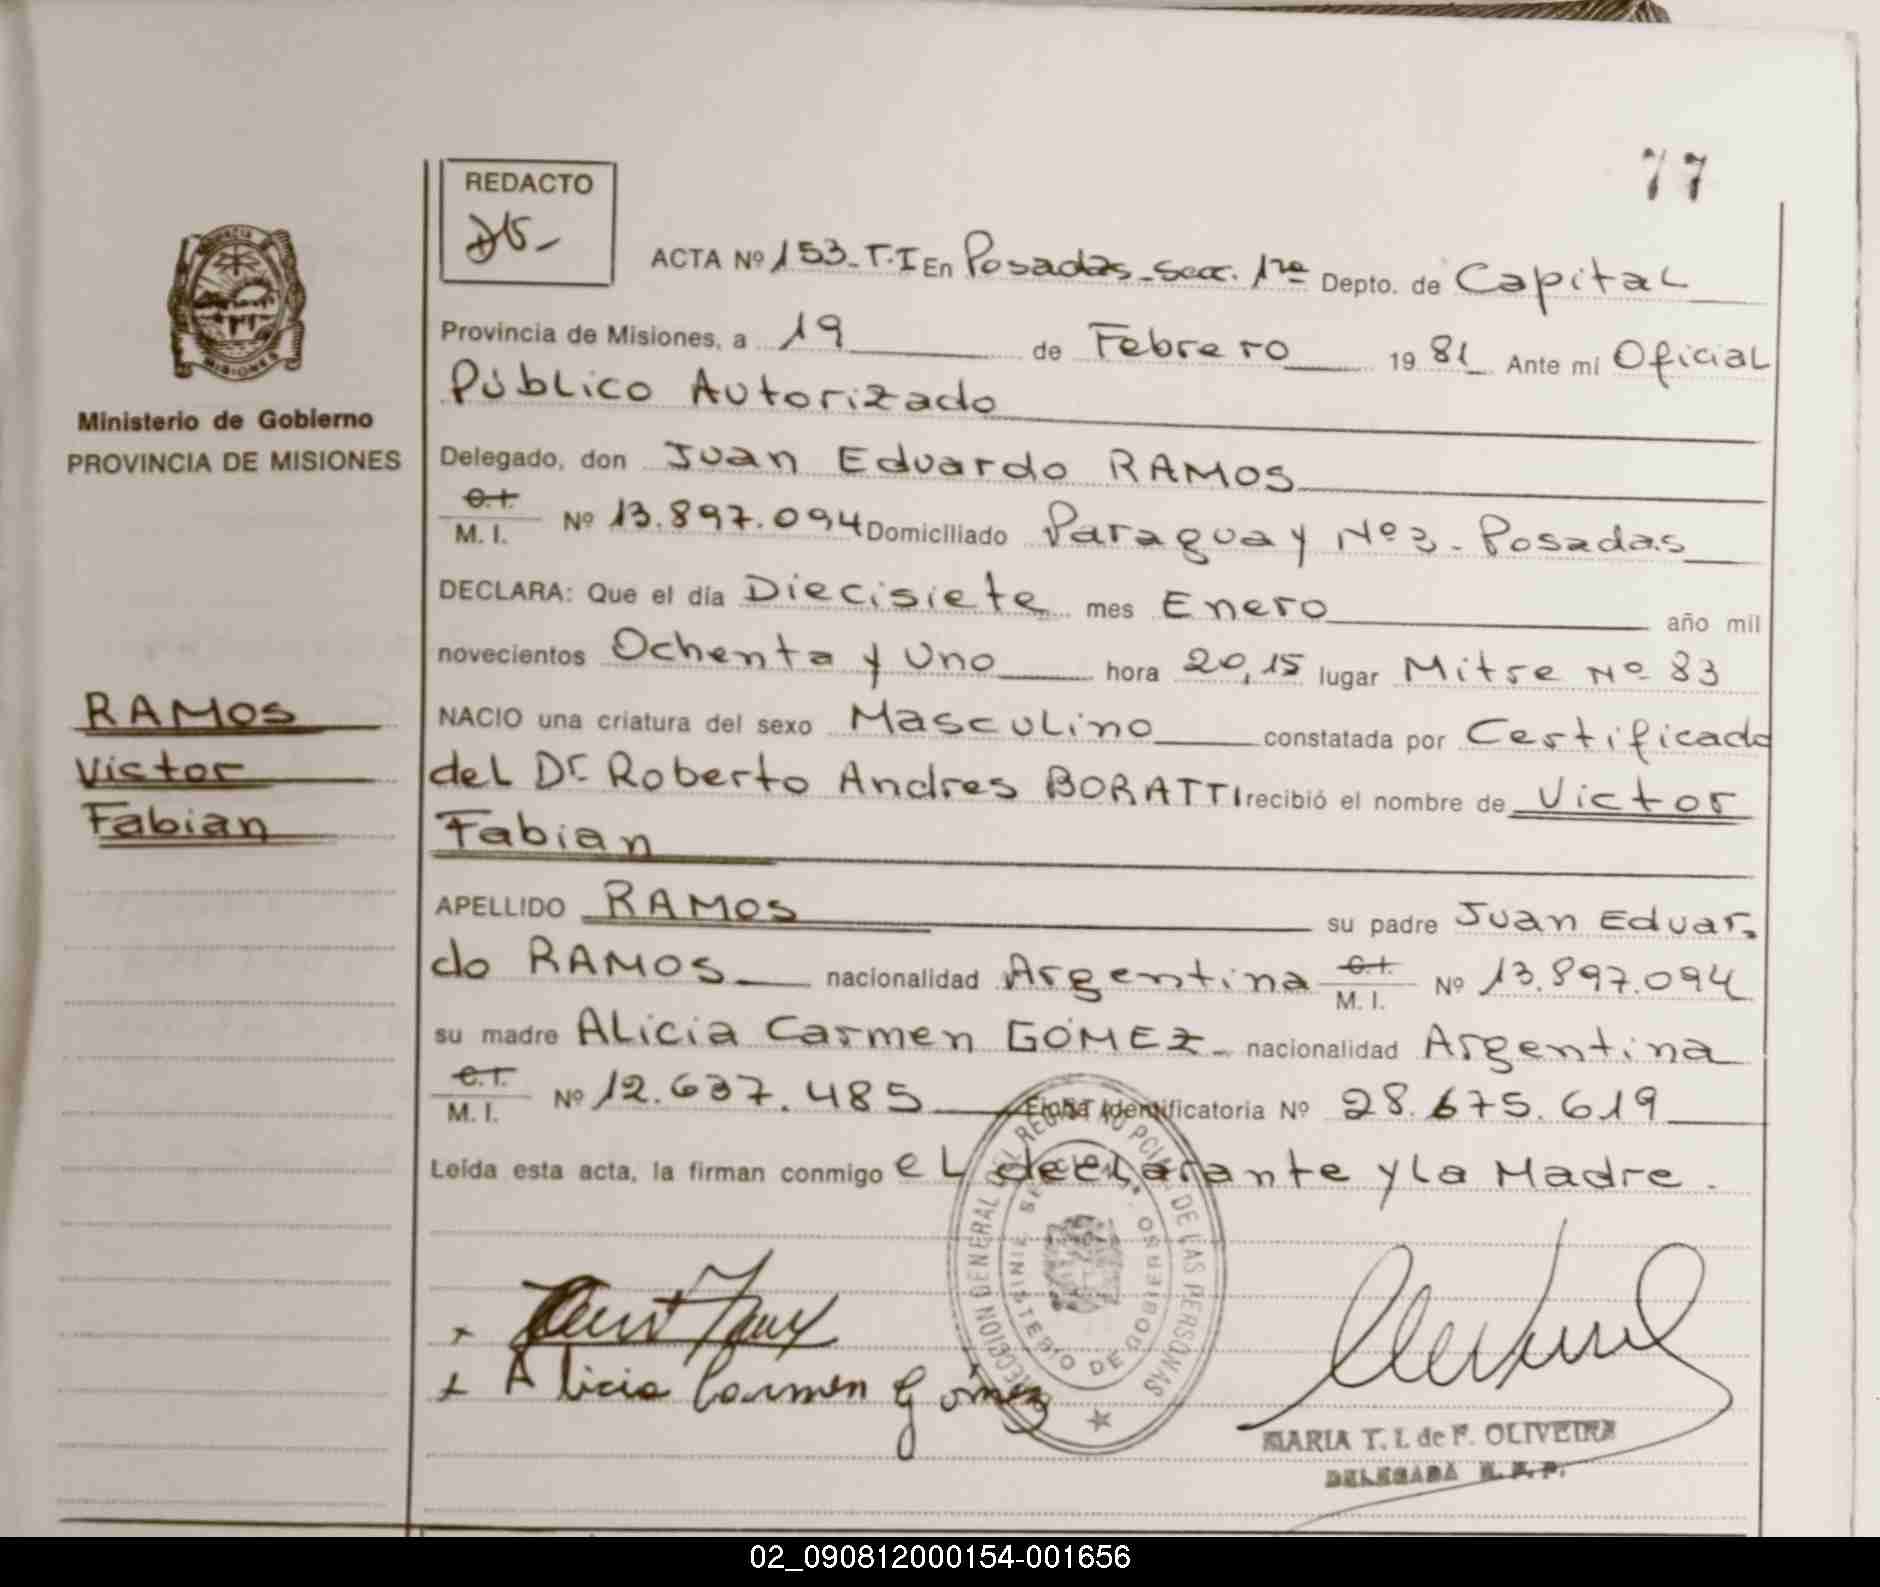 77
REDACTO
ACTA Nº 153-T.I En Posadas-Secc. 1ra Depto. de Capital
Provincia de Misiones, a 19 de Febrero 1981 Ante mí Oficial
Público Autorizado
Delegado, don Juan Eduardo RAMOS
C.I.
M. I. Nº 13.897.094 Domiciliado Paraguay Nº 3 - Posadas
DECLARA: Que el día Diecisiete mes Enero año mil
novecientos Ochenta y Uno hora 20,15 lugar Mitre Nº 83
NACIO una criatura del sexo Masculino constatada por Certificado
del Dr Roberto Andres BORATTI recibió el nombre de Victor
Fabian
APELLIDO RAMOS su padre Juan Eduar-
do RAMOS nacionalidad Argentina C.I. M. I. Nº 13.897.094
su madre Alicia Carmen GÓMEZ - nacionalidad Argentina
C.I.
M. I. Nº 12.637.485 Ficha Identificatoria Nº 28.675.619
Leída esta acta, la firman conmigo el declarante y la Madre.
Alicia Carmen Gómez
MARIA T. I. de F. OLIVEIRA
DELEGADA R. P. P.
PROVINCIA
MISIONES
Ministerio de Gobierno
PROVINCIA DE MISIONES
RAMOS
Victor
Fabian
DIRECCION GENERAL DEL REGISTRO PCIAL. DE LAS PERSONAS
MINISTERIO DE GOBIERNO
02_090812000154-001656